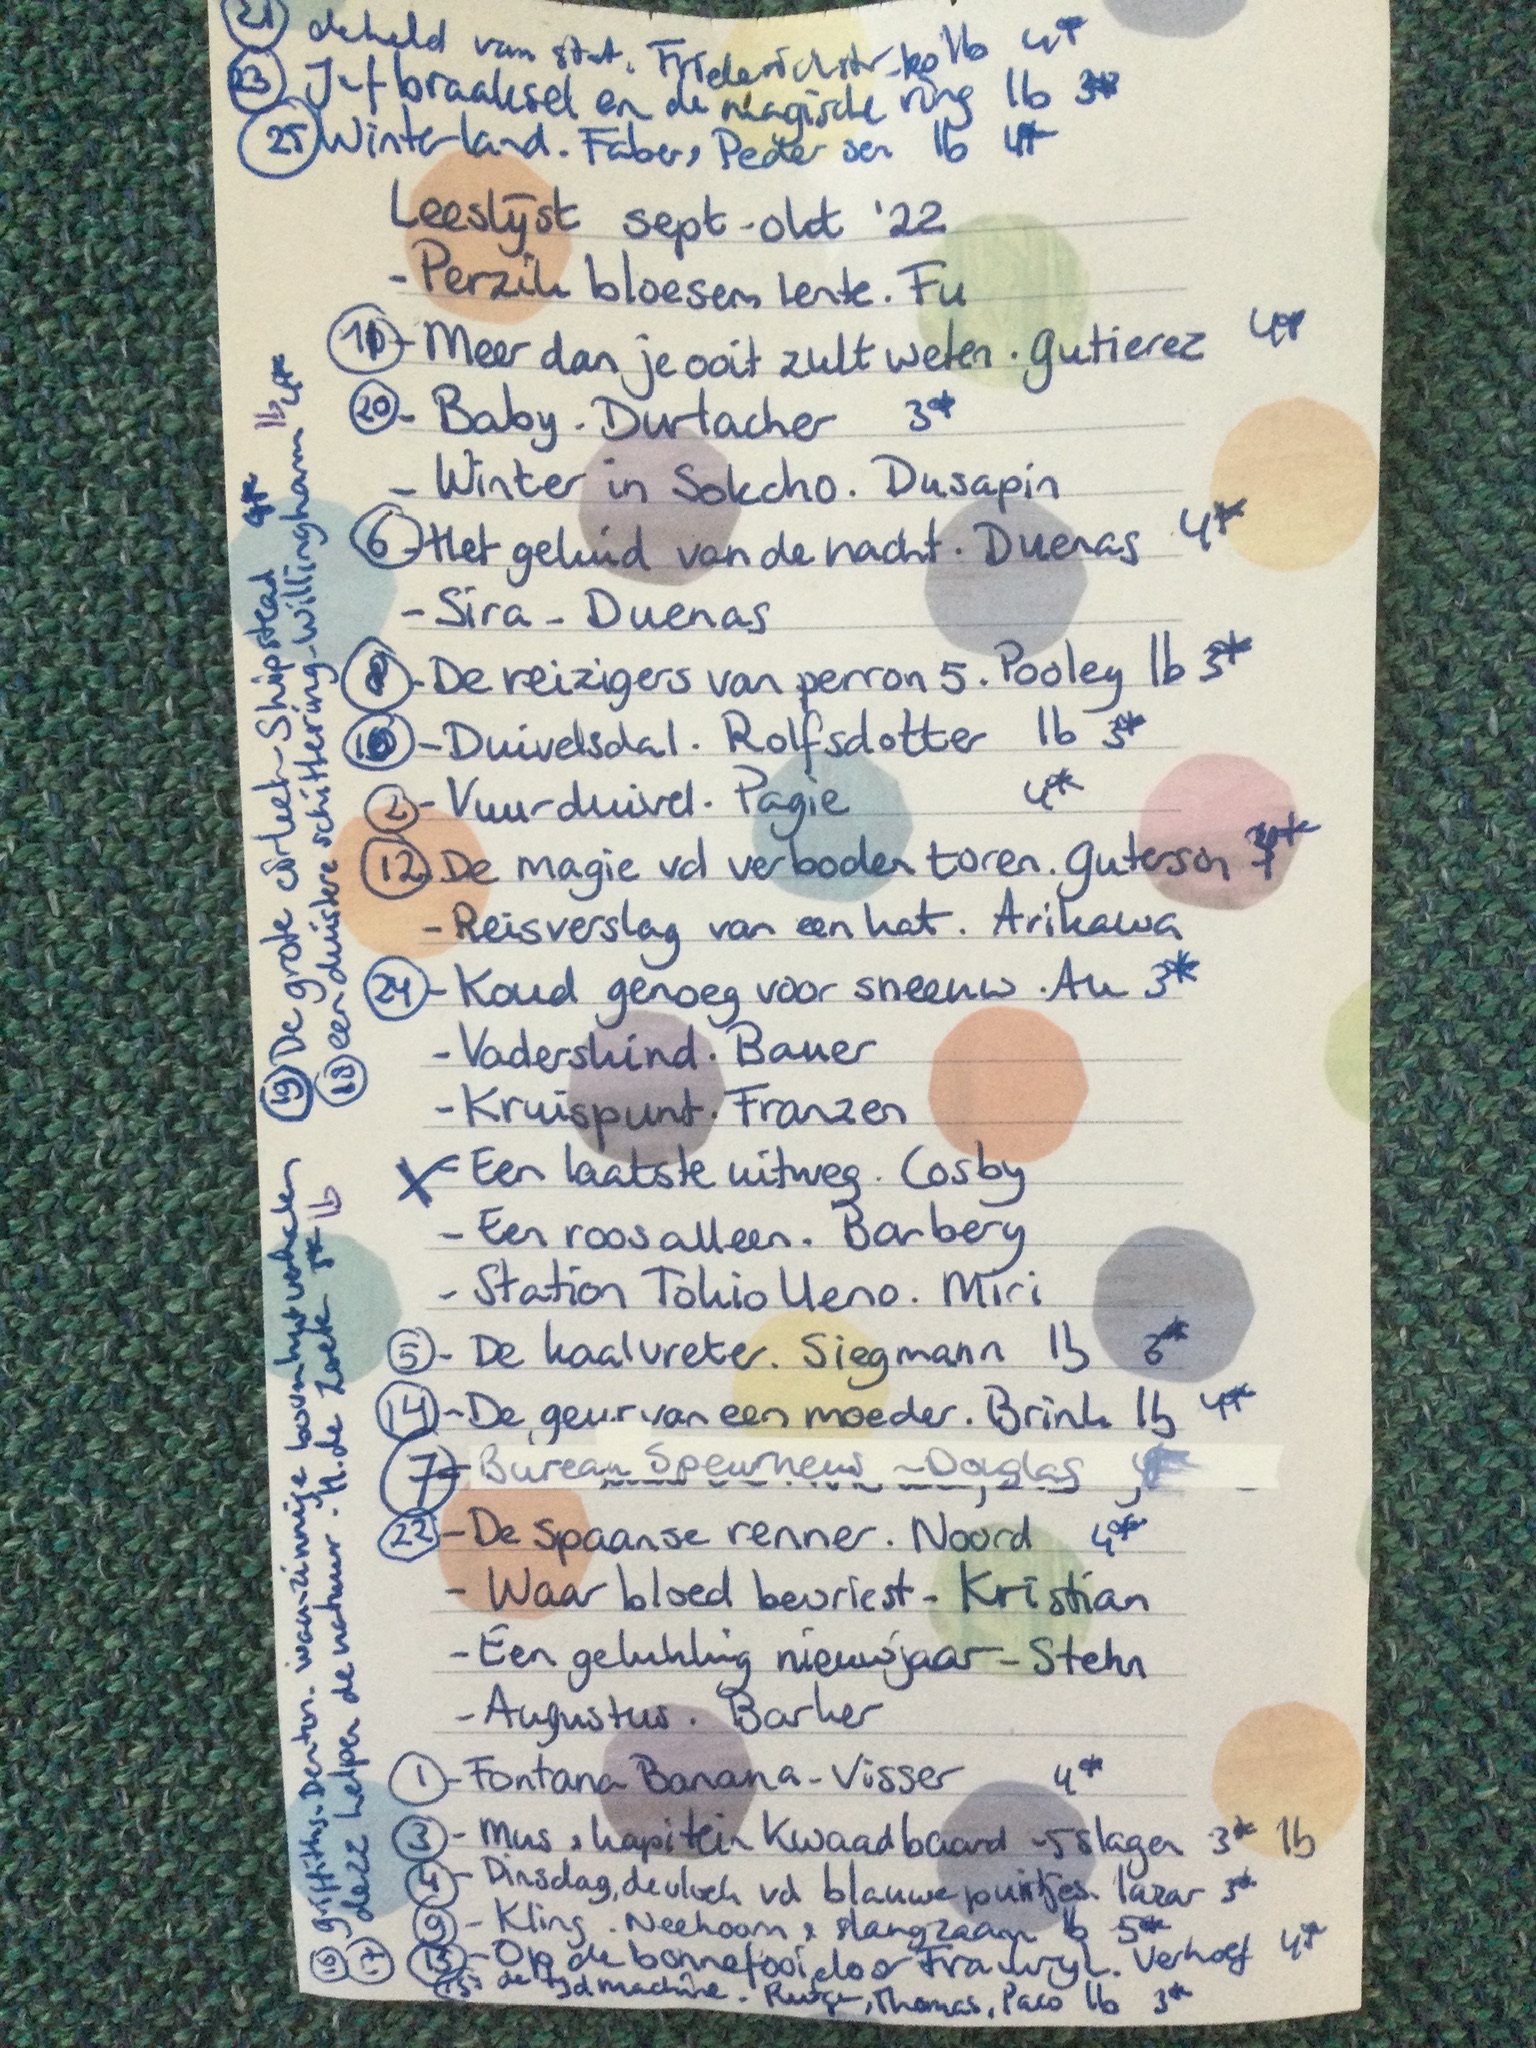 21 de held van stat. Friederichstr. ko lb 4*
23 Juf braaksel en de magische ring lb 3*
25 Winterland. Faber, Pedersen lb 4*
Leeslijst sept-okt '22
- Perzik bloesem lente. Fu
11 - Meer dan je ooit zult weten. Gutierez 4*
20 - Baby. Durlacher 3*
- Winter in Sokcho. Dusapin
6 - Het geluid van de nacht. Duenas 4*
- Sira - Duenas
8 - De reizigers van perron 5. Pooley lb 3*
10 - Duivelsdal. Rolfsdotter lb 3*
2 - Vuurduivel. Pagie 4*
12 De magie vd verboden toren. Guterson 4*
- Reisverslag van een kat. Arikawa
24 - Koud genoeg voor sneeuw. Au 3*
- Vaderskind. Bauer
- Kruispunt. Franzen
X - Een laatste uitweg. Cosby
- Een roos alleen. Barbery
- Station Tokio Ueno. Miri
5 - De kaalvreter. Siegmann lb
14 - De geur van een moeder. Brink lb 4*
7 - Bureau Speurneus - Douglas
22 - De Spaanse renner. Noord 4*
- Waar bloed bevriest - Kristian
- Een gelukkig nieuwjaar - Stehn
- Augustus. Barker
1 - Fontana Banana - Visser 4*
3 - Mus & kapitein Kwaadbaard - Slagen 3* lb
4 - Dinsdag, de vloek vd blauwe puntjes. Lazar 3*
9 - Kling. Neehoorn & slangzaam lb 5*
13 - Op de bonnefooi door Frankrijk. Verhoef 4*
15 de tijdmachine. Rutger, Thomas, Paco lb 3*
16 Griffiths-Denton. waanzinnige boomhutverhalen
17 dezz helpen de natuur. H. de Zoete 3* lb
18 een duistere schittering - Willingham lb 4*
19 De grote cirkel - Shipstead 4*